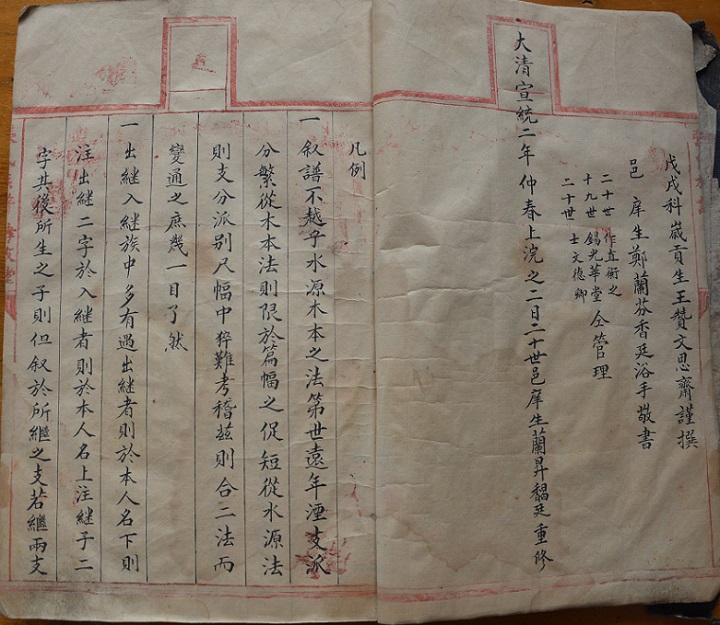 戊戌科嵗貢生王贊文思齋謹撰
邑庠生鄭蘭芬香廷浴手敬書
二十世 作直衡之
十九世 錫光華堂 仝管理
二十世 士文德卿
大清宣統二年仲春上浣之二日二十世邑庠生蘭昇馧廷重修
凡例
一叙譜不越乎水源木本之法第世遠年湮支派
分繁從木本法則限於篇幅之促短從水源法
則支分派别尺幅中猝難考稽兹則合二法而
變通之庶幾一目了然
一出継入継族中多有遇出継者則於本人名下則
注出継二字於入継者則於本人名上注継子二
字其後所生之子則但叙於所繼之支若繼兩支